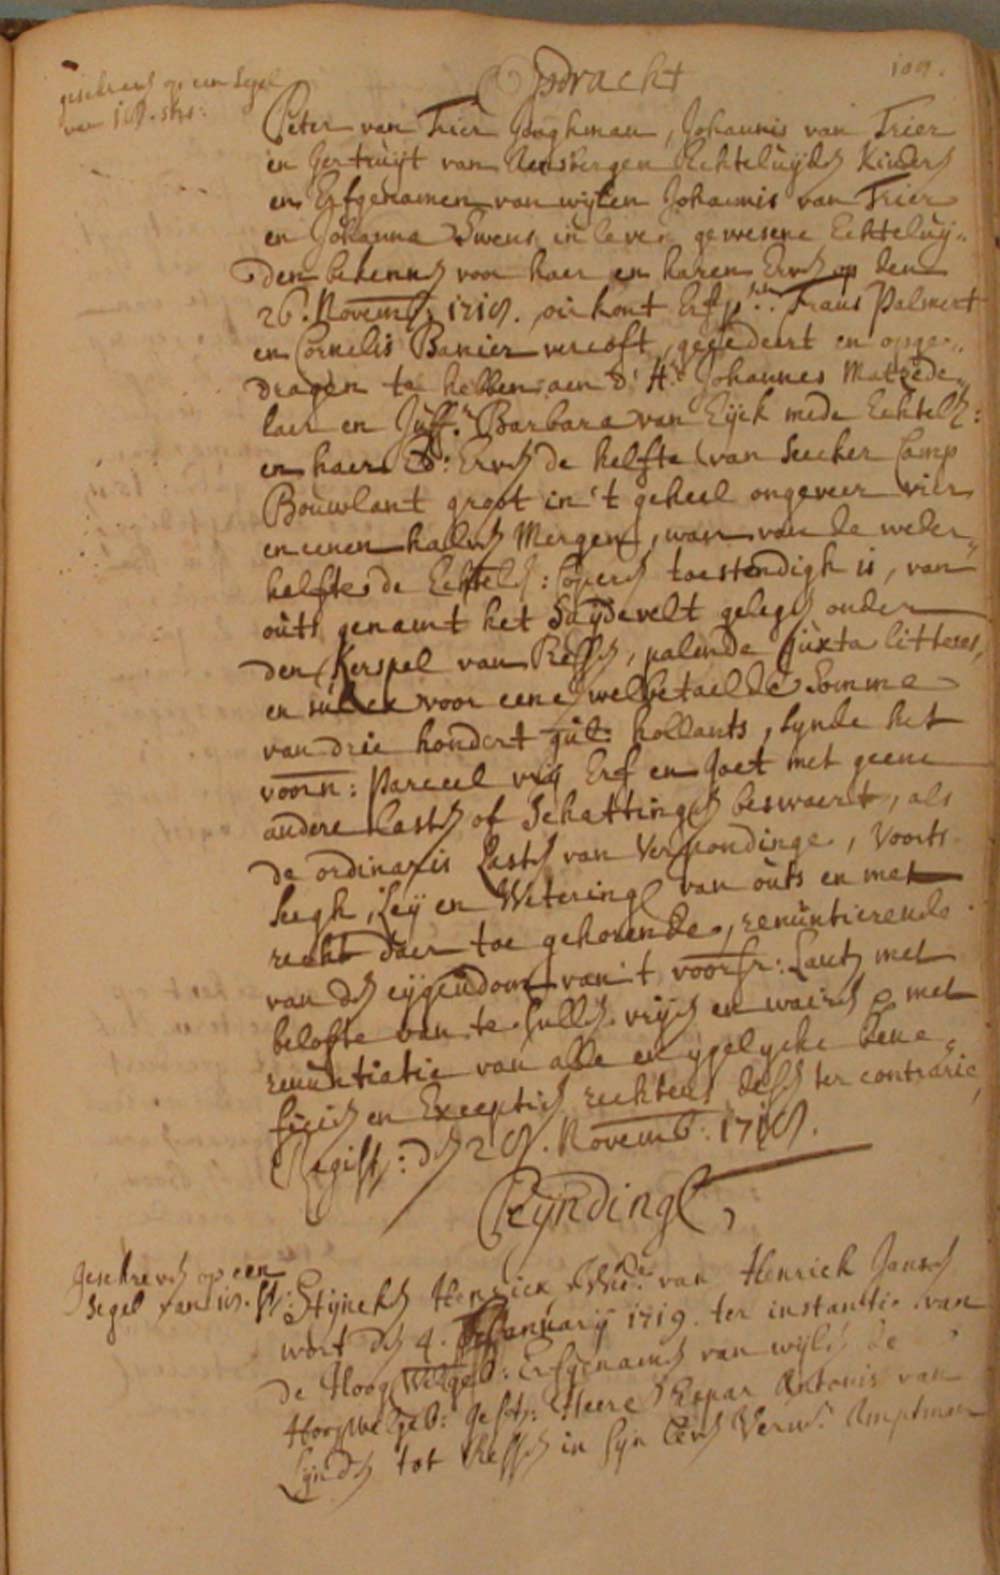 109.
Opdracht
geschreven op een Segel
van 18. strs:
Peter van Trier Jonghman, Johannis van Trier
en Gertruijt van Rensbergen Echteluijden Kinderen
en Erfgenamen van wijlen Johannis van Trier
en Johanna Swens in leven gewesene Echteluij„
den bekennen voor haer en haren Erven op den
26. Novemb: 1718. oirkont Erfp.rs Frans Palmert
en Cornelis Banier vercoft, gecedeert en opge„
dragen te hebben aen d' Hr. Johannes
laer en Juffr. Barbara van Eijck mede Echtel:
en haere Ed: Erven de helfte van Seecker Camp
Bouwlant groot in 't geheel ongeveer vier
en eenen halven Mergen, waer van de weder„
helfte de Echtel: Coperen toestendigh is, van
outs genaemt het Suydevelt gelegen onder
den Kerspel van Ressen, palende juxta litteras,
en sulcx voor eene welbetaelde Somme
van drie hondert gul: hollants, synde het
voorn: Parceel vrij Erf en Goet met geene
andere lasten of Schattingen beswaert, als
de ordinaris Lasten van Verpondinge, Voorts
Seegh, Leij en Weteringe van outs en met
recht daer toe gehorende, renuntierende
van den eijgendom van 't voorsr: Lant, met
belofte van te sullen vrijen en waren met
renuntiatie van alle en ygelycke bene„
ficien en Exceptien rechtens desen ter contrarie,
Regist: den 28. Novemb: 1718.
Peijndinge,
geschreven op een
Segel van 18. st:
Stijneken Henricx Wed.e van Henrick Jansen
wort den 4. January 1719. ter instantie van
de Hoog Welgeb: Erfgenamen van wijlen de
Hoogwelgeb: gestr: Heere Caspar Antonis van
Lynden tot Ressen in Syn leven Verw.r Amptman